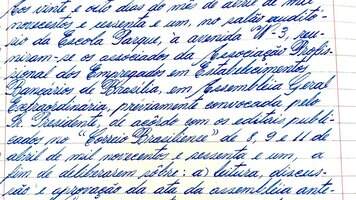 Aos vinte e oito dias do mês de abril de mil
novecentos e sessenta e um, no salão auditó-
rio da Escola Parque, à avenida W-3, reu-
niram-se os associados da Associação Profis-
sional dos Empregados em Estabelecimentos
Bancários de Brasília, em Assembléia Geral
Extraordinária, préviamente convocada pelo
Sr. Presidente, de acôrdo com os editais publi-
cados no "Correio Brasiliense" de 8, 9 e 11 de
abril de mil novecentos e sessenta e um, a
fim de deliberarem sôbre: a) leitura, discus-
são e aprovação da ata da assembléia ante-